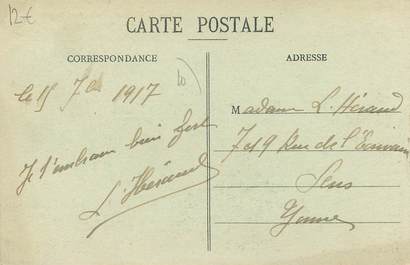 12€
CARTE POSTALE
CORRESPONDANCE
ADRESSE
le 15 7bre 1917
Je t'embrasse bien fort
L. Hérand
Madame L. Hérand
7 et 9 Rue de l'Écrivain
Sens
Yonne